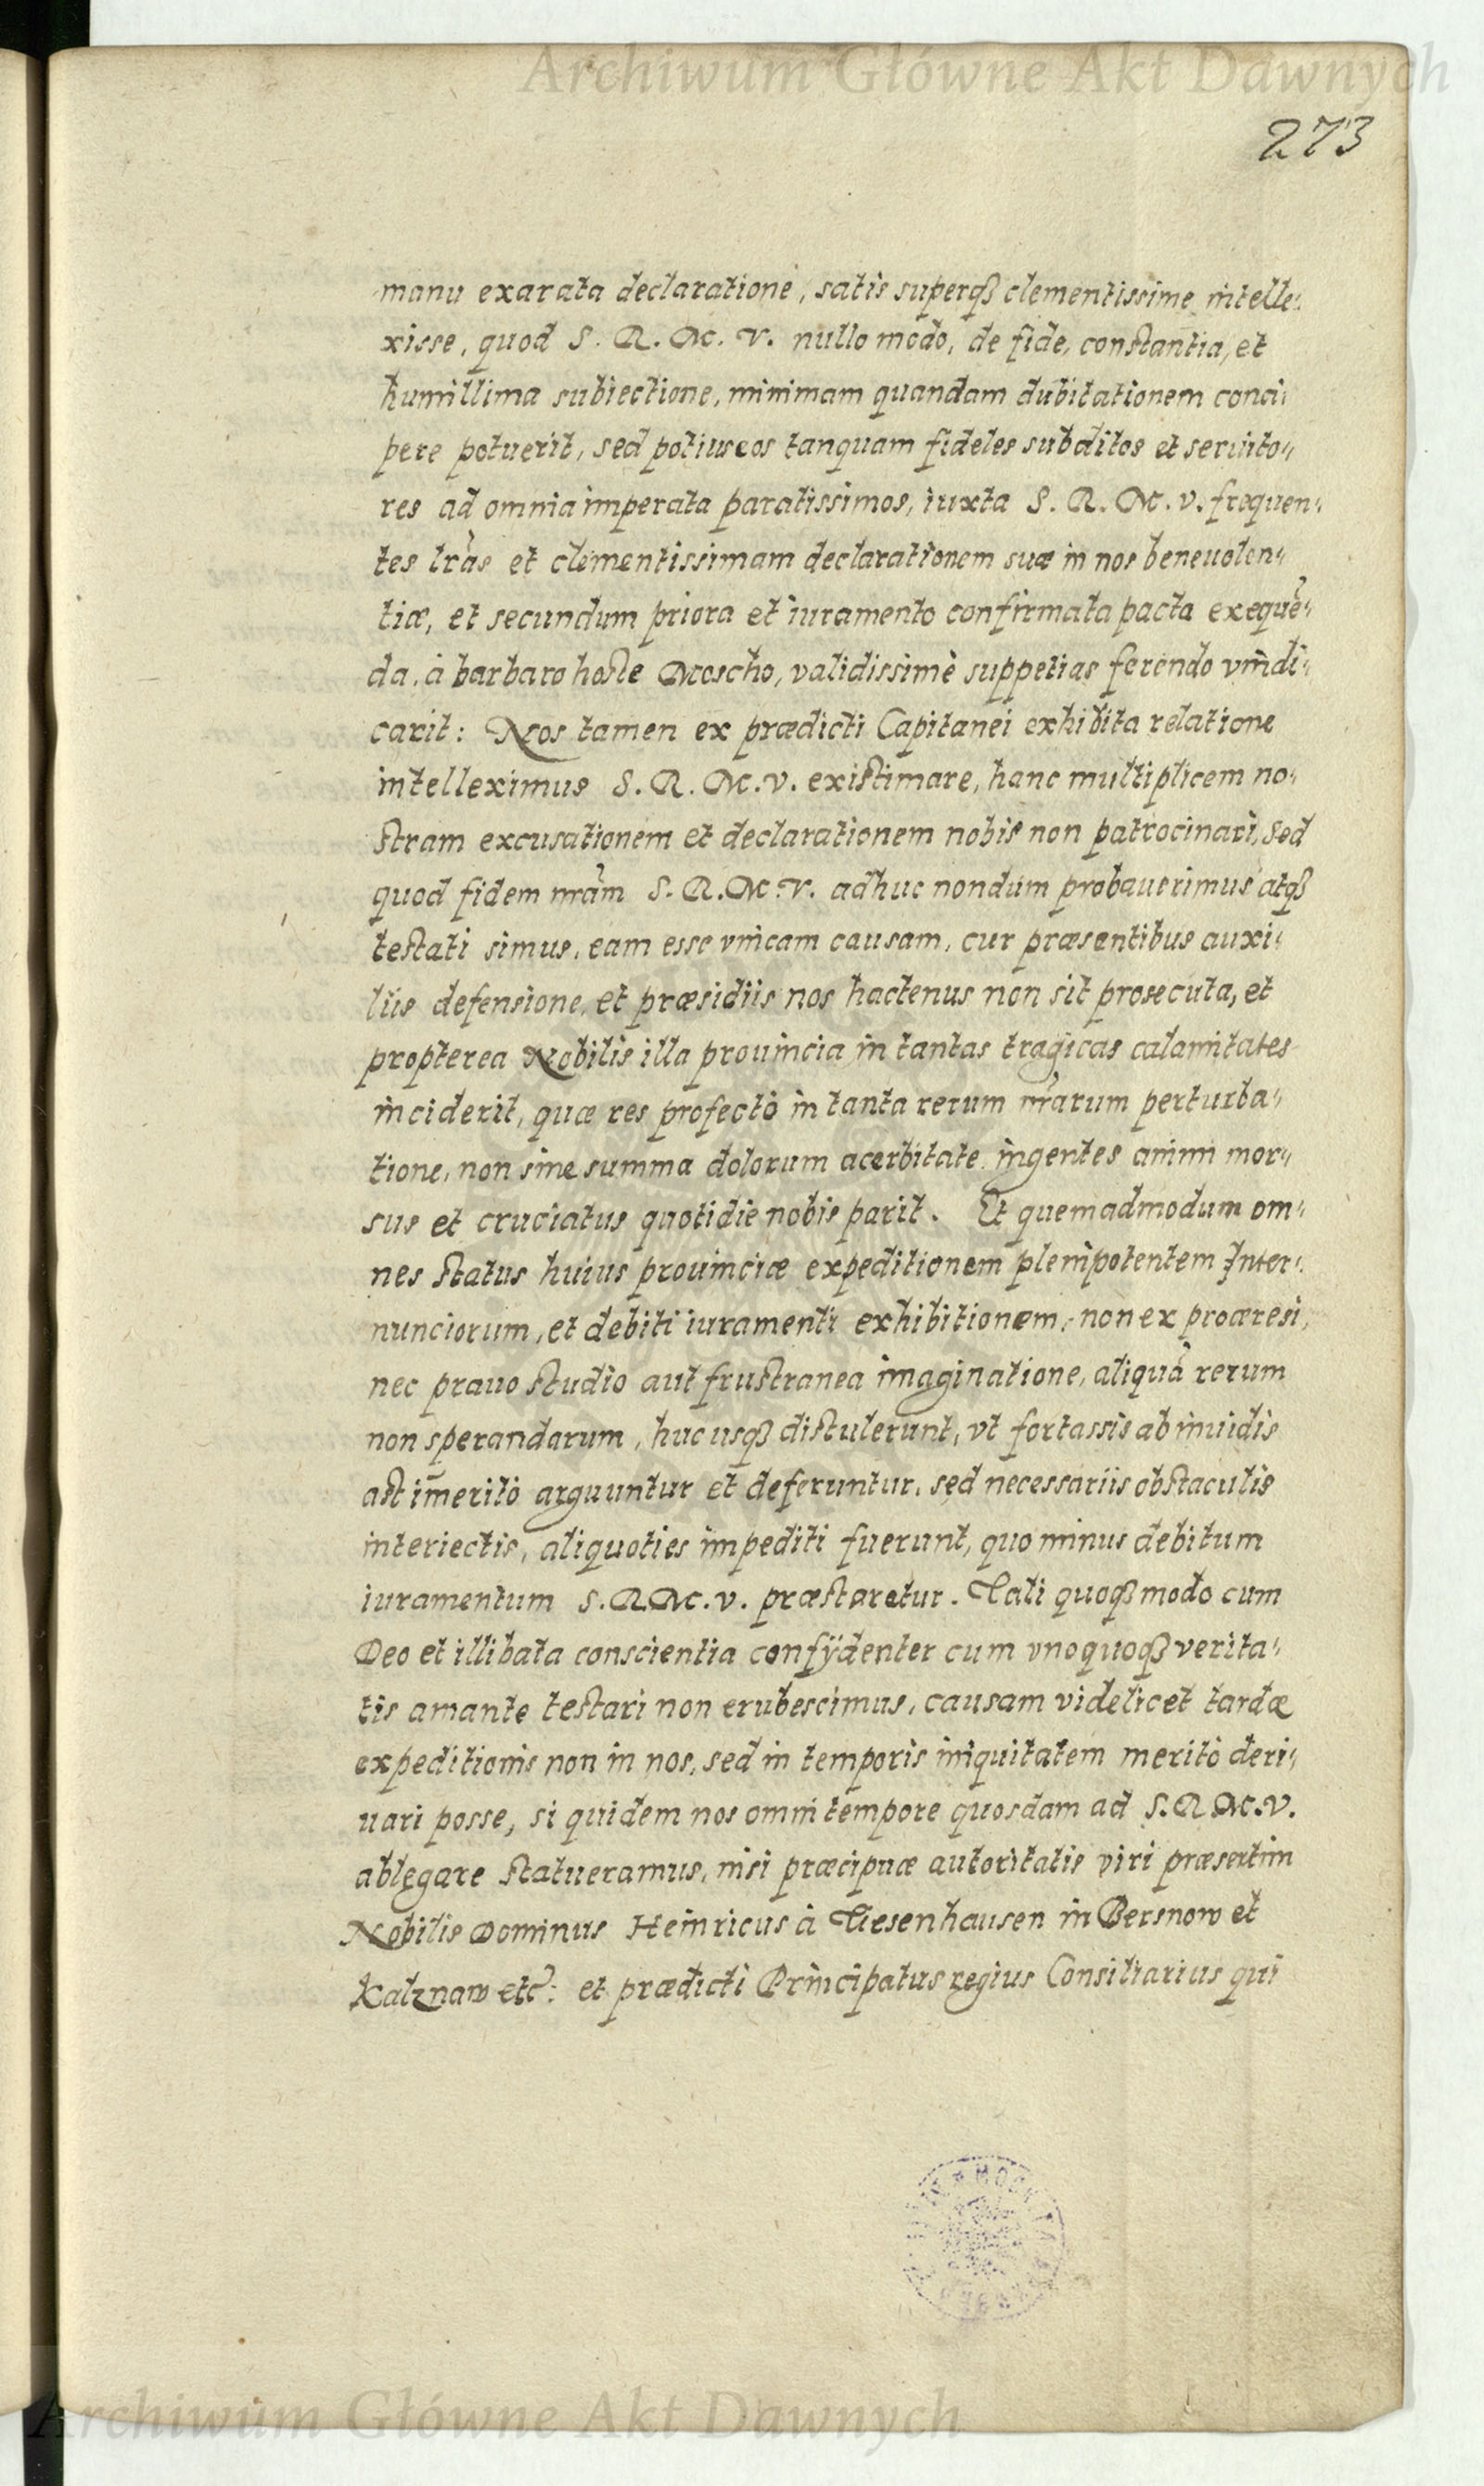 Archiwum Główne Akt Dawnych
273
manu exarata declaratione, satis superqȝ clementissime intelle-
xisse, quod S. R. M. V. nullo modo, de fide, constantia, et
humillima subiectione, minimam quandam dubitationem conci-
pere potuerit, sed potius eos tanquam fideles subditos et seruito-
res ad omnia imperata paratissimos, iuxta S. R. M. V. frequen-
tes lr̃as et clementissimam declarationem suæ in nos beneuolen-
tiæ, et secundum priora et iuramento confirmata pacta exequẽ-
da, à barbaro hoste Moscho, validissimè suppetias ferendo vindi-
carit: Nos tamen ex prædicti Capitanei exhibita relatione
intelleximus S. R. M. V. existimare, hanc multiplicem no-
stram excusationem et declarationem nobis non patrocinari, sed
quod fidem nr̃am S. R. M. V. adhuc nondum probauerimus atqȝ
testati simus, eam esse vnicam causam, cur præsentibus auxi-
liis defensione, et præsidiis nos hactenus non sit prosecuta, et
propterea Nobilis illa prouincia in tantas tragicas calamitates
inciderit, quæ res profectò in tanta rerum nr̃arum perturba-
tione, non sine summa dolorum acerbitate ingentes animi mor-
sus et cruciatus quotidie nobis parit. Et quemadmodum om-
nes status huius prouinciæ expeditionem plenipotentem Inter-
nunciorum, et debiti iuramenti exhibitionem, non ex proæresi,
nec prauo studio aut frustranea imaginatione, aliquã rerum
non sperandarum, hucusqȝ distulerunt, vt fortassis ab inuidis
ast im̃eritò arguuntur et deferuntur, sed necessariis obstaculis
interiectis, aliquoties impediti fuerunt, quo minus debitum
iuramentum S. R. M. V. præstaretur. Tali quoqȝ modo cum
Deo et illibata conscientia confÿdenter cum vnoquoqȝ verita-
tis amante testari non erubescimus, causam videlicet tardæ
expeditionis non in nos, sed in temporis iniquitatem meritò deri-
uari posse, si quidem nos omni tempore quosdam ad S. R. M. V.
ablegare statueramus, nisi præcipuæ autoritatis viri præsertim
Nobilis Dominus Heinricus à Tiesenhausen in Bersnow et
Kalznaw etc: et prædicti Principatus regius Consiliarius qui
Archiwum Główne Akt Dawnych